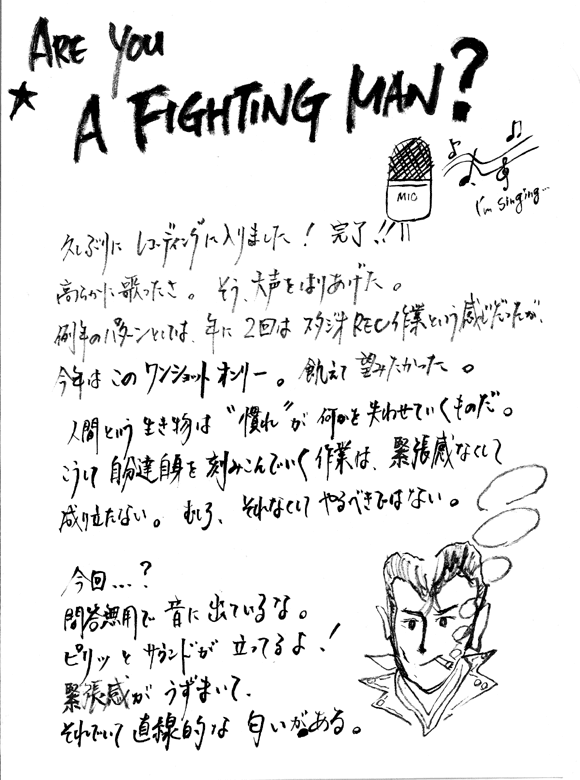 ARE YOU
★ A FIGHTING MAN?
MIC
I'm singing...
久しぶりに レコーディングに入りました! 完了!!
高らかに歌ったさ。 そう、大声をはりあげた。
例年のパターンとしては、年に2回は スタジオREC作業という感じだったが、
今年は この ワンショット オンリー。 飢えて 望みたかった。
人間という 生き物は "慣れ"が 何かを失わせていくものだ。
こうして 自分達自身を 刻みこんでいく 作業は、緊張感なくして
成り立たない。 むしろ、それなくして やるべきではない。
今回...?
問答無用で 音に 出ているな。
ピリッと サウンドが 立ってるよ!
緊張感が うずまいて、
それでいて 直線的な 匂いがある。